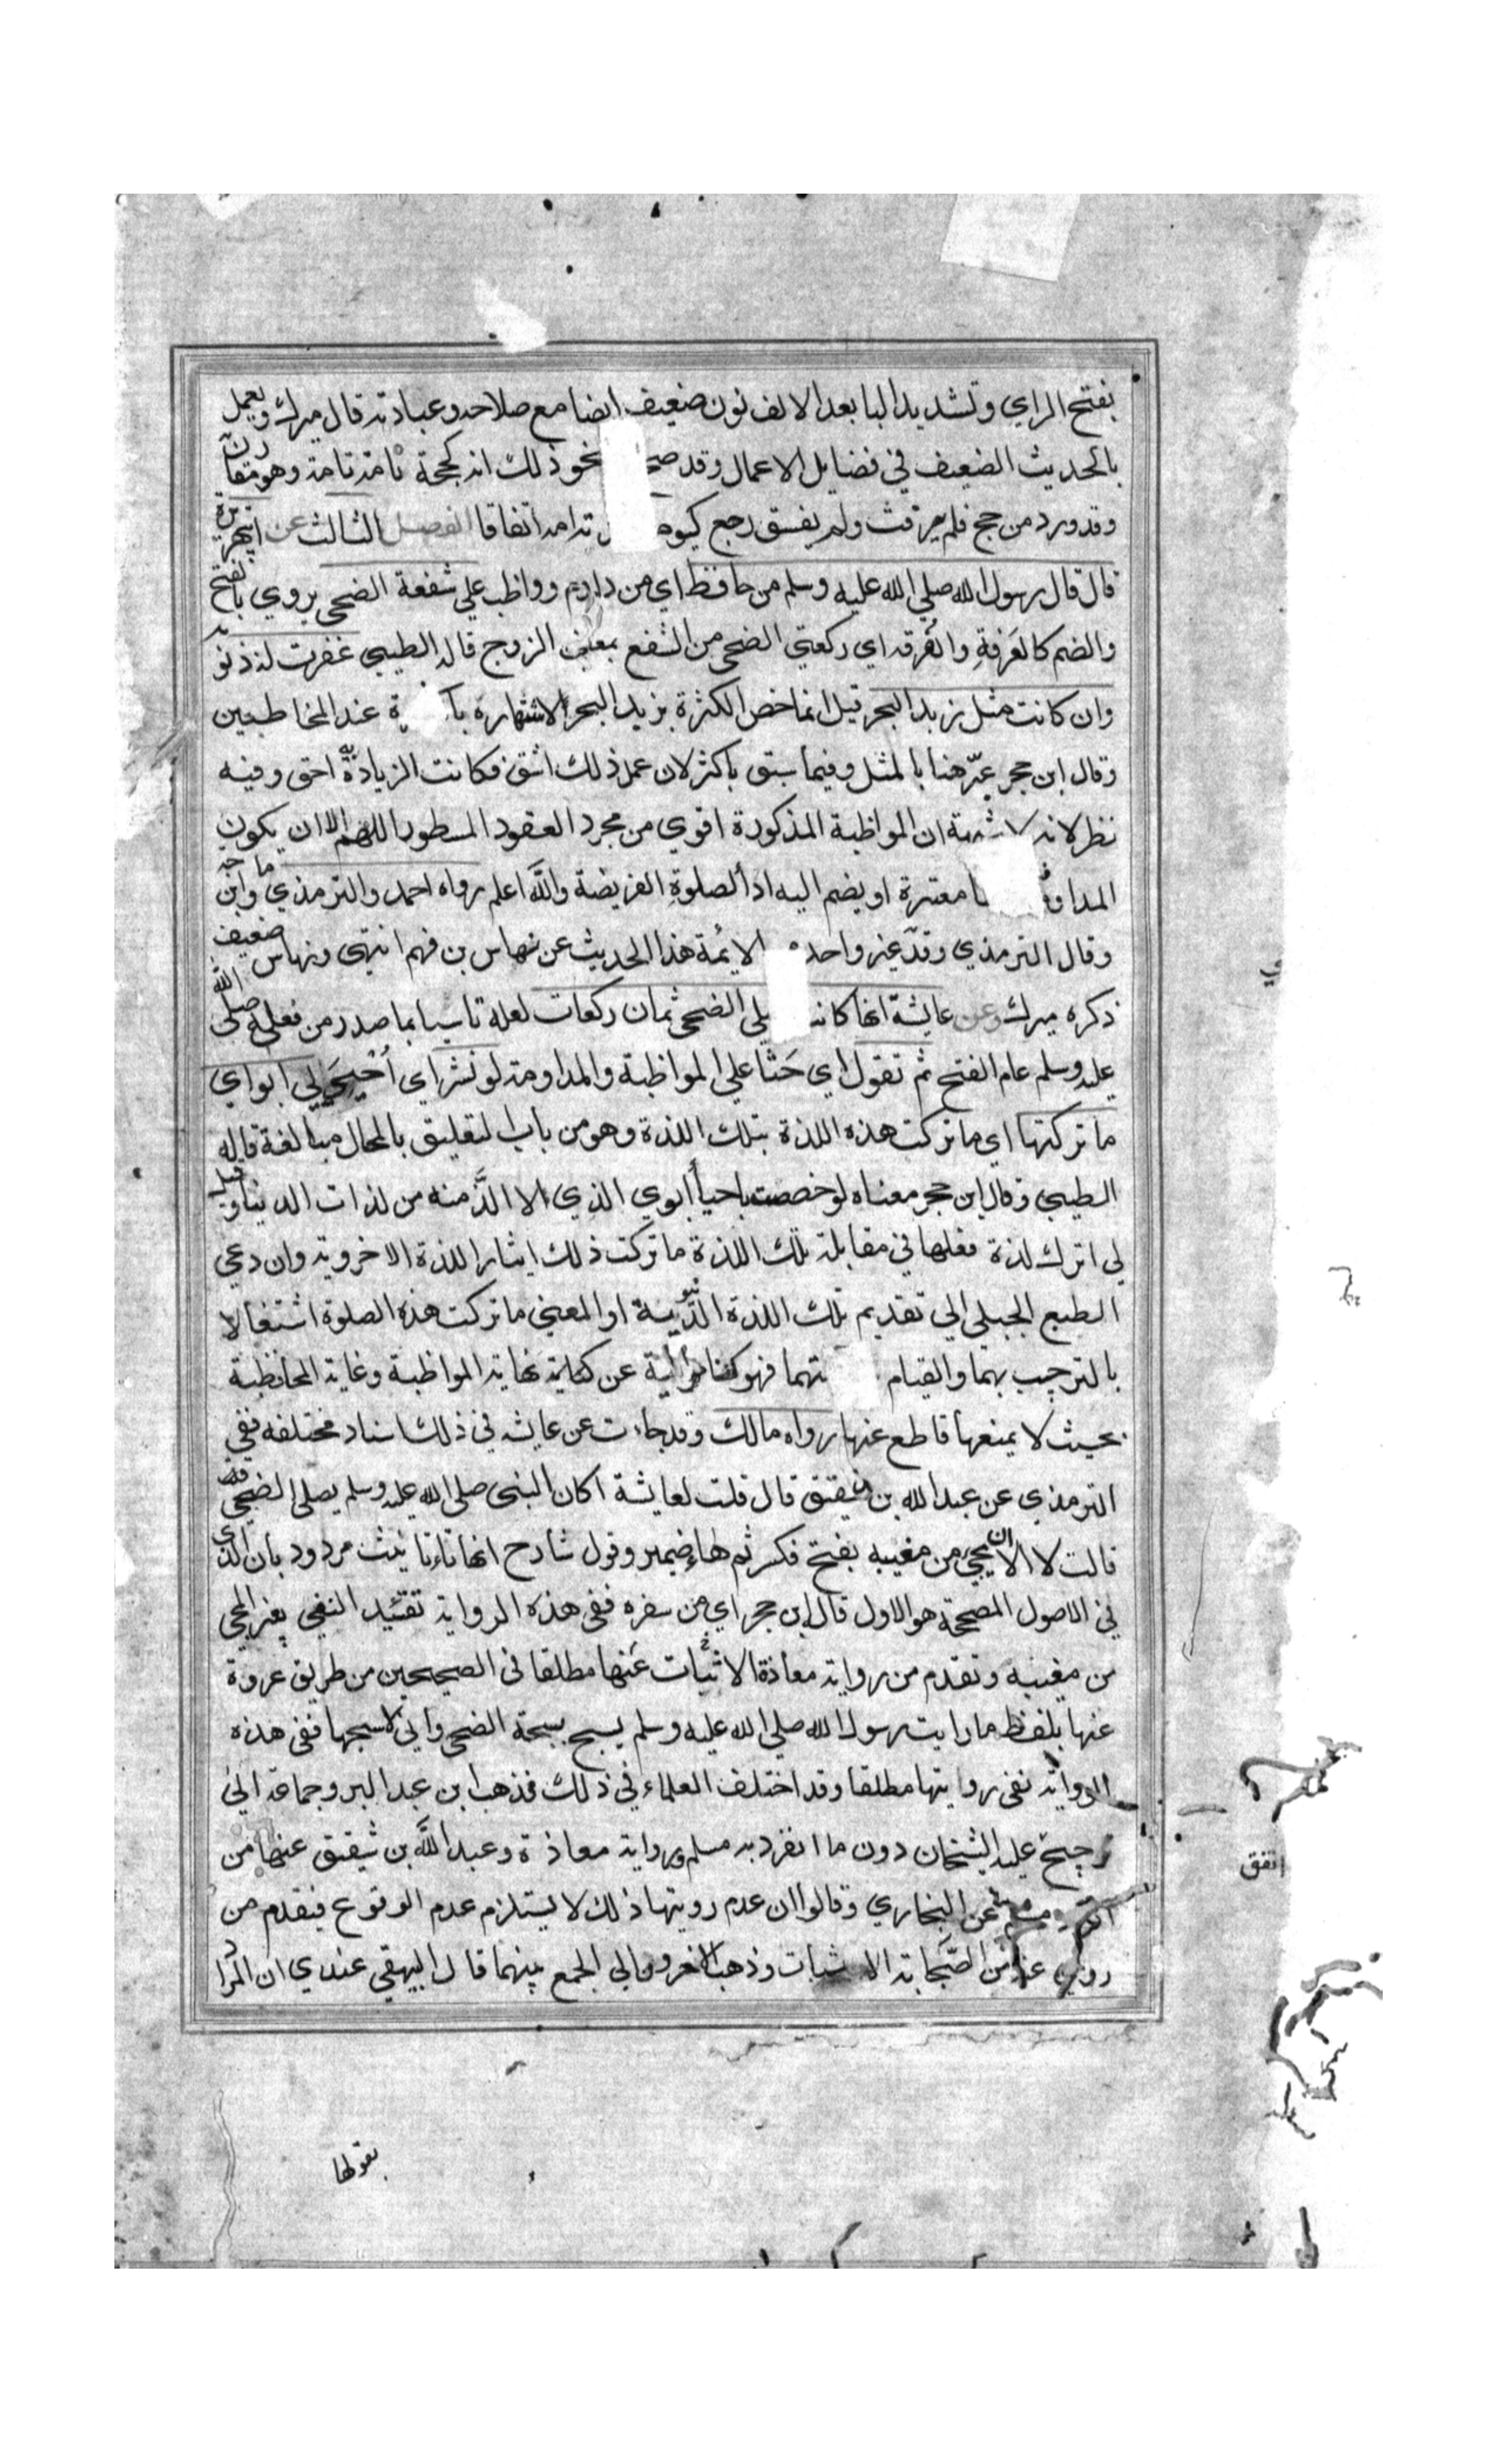 بفتح الراي وتشديد البا بعد الالف نون ضعيف ايضا مع صلاحه وعبادته قال ميرك ويعمل
بالحديث الضعيف في فضايل الاعمال وقد نحو ذلك انه كحجة تامة تامة وهو متقارن
وقد ورد من حج فلم يرفث ولم يفسق رجع كيوم اتفاقا الفصل الثالث عن
قال قال رسول الله صلي الله عليه وسلم من حافظ اي من داوم وواظب علي شفعة الضحى يروي بالفتح
والضم كالغَرفةِ والغُرفه اي ركعتي الضحى من الشفع بمعنى الزوج قاله الطيبي غفرت له ذنوبه
وان كانت مثل زبد البحر قيل انما خص الكثرة بزبد البحر لاشتهاره عند المخاطبين
وقال ابن حجر عبّر هنا بالمثل وفيما سبق باكثر لان عمل ذلك اشق فكانت الزيادة احق وفيه
نظر لانه لا شبهة ان المواظبة المذكورة اقوي من مجرد العقود المسطور اللهم الا ان يكون
معتبرة او يضم اليه اداُ لصلوة الفريضة واللّه اعلم رواه احمد والترمذي وابن ماجه
وقال الترمذي وقد غير واحد الايُمة هذا الحديث عن نهاس بن فهم انتهى ونهاس ضعيف
ذكره ميرك وعن عايشة انها كانت الضحى ثمان ركعات لعله تاسيا بما صدر من فعله صلى الله
عليه وسلم عام الفتح ثم تقول اي حَثا علي المواظبة والمداومة لو نشر اي اُحْيِيَ لي ابواي
ما تركتها اي ما تركت هذه اللذة بتلك اللذة وهو من باب التعليق بالمحال مبالغة قاله
الطيبي وقال ابن حجر معناه لو خصصت باحياُ ابوي الذي لا الذَّ منه من لذات الدينا وقيل
لي اترك لذة فعلها في مقابلة تلك اللذة ما تركت ذلك ايثار اللذة الاخروية وان دعي
الطبع الجبلي الي تقديم تلك اللذة الدنيوية او المعنى ما تركت هذه الصلوة اشتغالا
بالترحيب بهما والقيام فهو كناية عن نهاية المواظبة وغاية المحافظية
بحيث لا يمنعها قاطع عنها رواه مالك وقد جاءت عن عايشه في ذلك اسناد مختلفه ففي
الترمذي عن عبد الله بن شقيق قال قلت لعايشة اكان النبى صلى الله عليه وسلم يصلي الضحى
قالت لا الا ان يجيَ من مغيبه بفتح فكسر ثم هاء ضمير وقول شارح انها تاء تانيث مردود بان الذي
في الاصول المصححة هو الاول قال ابن حجر اي من سفره ففي هذه الرواية تقييد النفي بغير المجي
من مغيبه وتقدم من رواية معاذة الاثبات عنها مطلقا في الصحيحين من طريق عروة
عنها بلفظ ما رايت رسول الله صلي الله عليه وسلم يسبح سبحة الضحى واني لاسبحها ففى هذه
الرواية نفى رويتها مطلقا وقد اختلف العلماء في ذلك فذهب ابن عبد البر وجماعة الي
عليه الشيخان دون ما انفرد به مسلم ورواية معاذة وعبد اللّه بن شقيق عنها من
عن البخاري وقالوا ان عدم رويتها ذلك لا يستلزم عدم الوقوع فيقدم من
روي عنه من الصحابة الاثبات وذهب الاخرون الي الجمع بينهما قال البيهقي عندي ان المراد
اتفق
بقولها